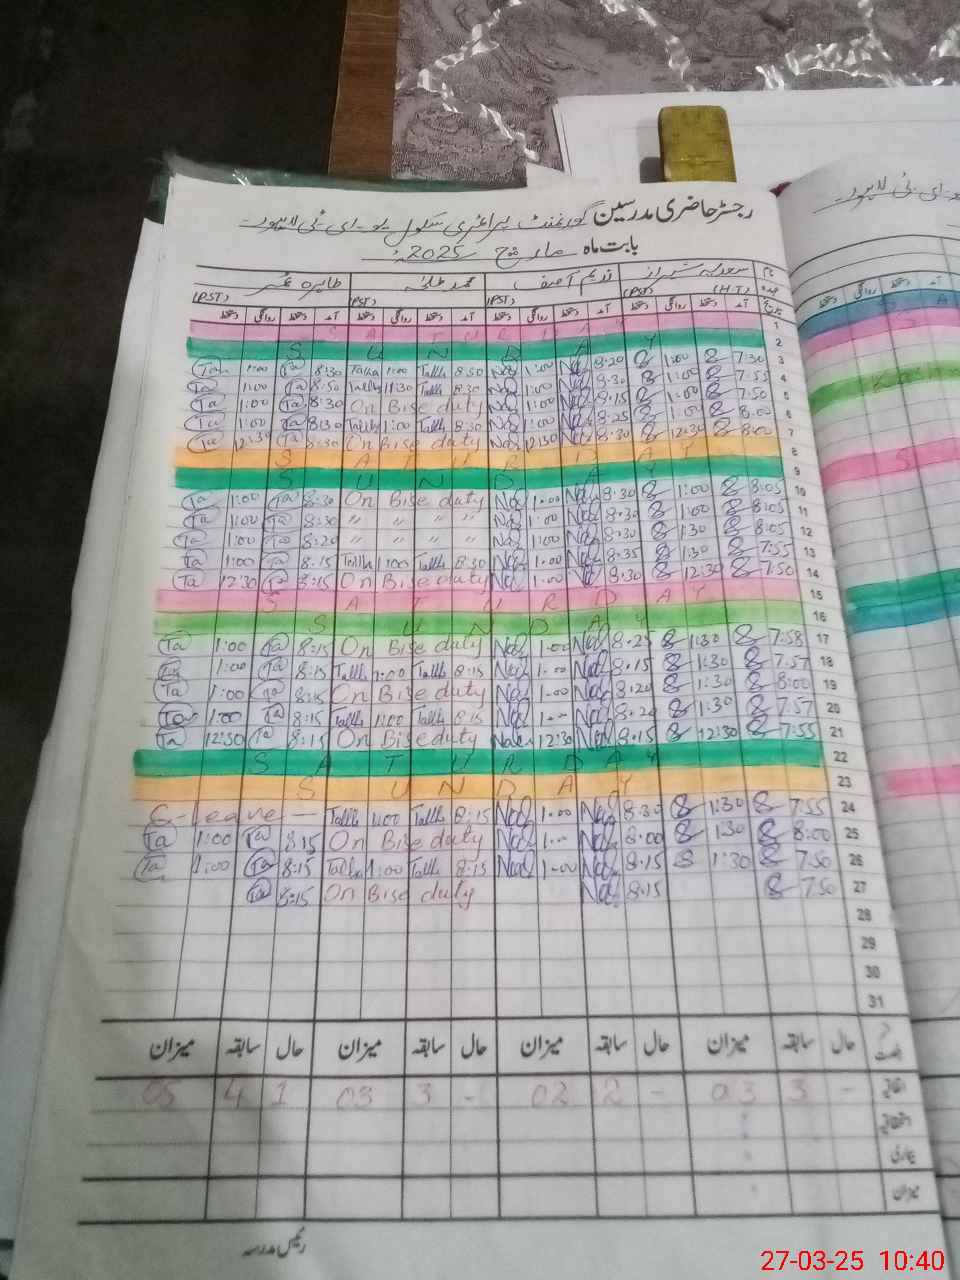 رجسٹر حاضری مدرسین گورنمنٹ پرائمری سکول یو-ای-ٹی لاہور
بابت ماہ مارچ 2025ء
نام سعدیہ شیراز ندیم آصف محمد طلحہ طاہرہ عمر
عہدہ (H.T) (PST) (PST) (PST)
تاریخ آمد دستخط روانگی دستخط آمد دستخط روانگی دستخط آمد دستخط روانگی دستخط آمد دستخط روانگی دستخط
SATURDAY 1
SUNDAY 2
Ta 1:00 Ta 8:30 Talha 1:00 Talh 8:30 Nad 1:00 Nad 8:20 1:00 7:30 3
Ta 1:00 Ta 8:30 Talh 11:30 Talh 8:30 Nad 1:00 Nad 8:30 1:00 7:55 4
Ta 1:00 Ta 8:30 On Bise duty Nad 1:00 Nad 8:15 1:00 7:50 5
Ta 1:00 Ta 8:30 Talh 1:00 Talh 8:30 Nad 1:00 Nad 8:25 1:00 8:00 6
Ta 12:30 Ta 8:30 On Bise duty Nad 12:30 Nad 8:30 12:30 8:00 7
SATURDAY 8
SUNDAY 9
Ta 1:00 Ta 8:30 On Bise duty Nad 1:00 Nad 8:30 1:00 8:05 10
Ta 1:00 Ta 8:30 〃 〃 〃 〃 Nad 1:00 Nad 8:30 1:00 8:05 11
Ta 1:00 Ta 8:20 〃 〃 〃 〃 Nad 1:00 Nad 8:30 1:30 8:05 12
Ta 1:00 Ta 8:15 Talh 1:00 Talh 8:30 Nad 1:00 Nad 8:35 1:30 7:55 13
Ta 12:30 Ta 8:15 On Bise duty Nad 1:00 Nad 8:30 12:30 7:50 14
SATURDAY 15
SUNDAY 16
Ta 1:00 Ta 8:15 On Bise duty Nad 1:00 Nad 8:25 1:30 7:58 17
Ta 1:00 Ta 8:15 Talh 1:00 Talh 8:15 Nad 1:00 Nad 8:15 1:30 7:57 18
Ta 1:00 Ta 8:15 On Bise duty Nad 1:00 Nad 8:20 1:30 8:00 19
Ta 1:00 Ta 8:15 Talh 1:00 Talh 8:15 Nad 1:00 Nad 8:20 1:30 7:57 20
Ta 12:30 Ta 8:15 On Bise duty Nad 12:30 Nad 8:15 12:30 7:55 21
SATURDAY 22
SUNDAY 23
C-leave — Talh 1:00 Talh 8:15 Nad 1:00 Nad 8:30 1:30 7:55 24
Ta 1:00 Ta 8:15 On Bise duty Nad 1:00 Nad 8:00 1:30 8:00 25
Ta 1:00 Ta 8:15 Talha 1:00 Talh 8:15 Nad 1:00 Nad 8:15 1:30 7:50 26
Ta 8:15 On Bise duty Nad 8:15 7:50 27
28
29
30
31
حال سابقہ میزان حال سابقہ میزان حال سابقہ میزان حال سابقہ میزان
اتفاقیہ - 3 03 - 2 02 - 3 03 1 4 05
بیماری
میزان
رئیس مدرسہ
27-03-25 10:40